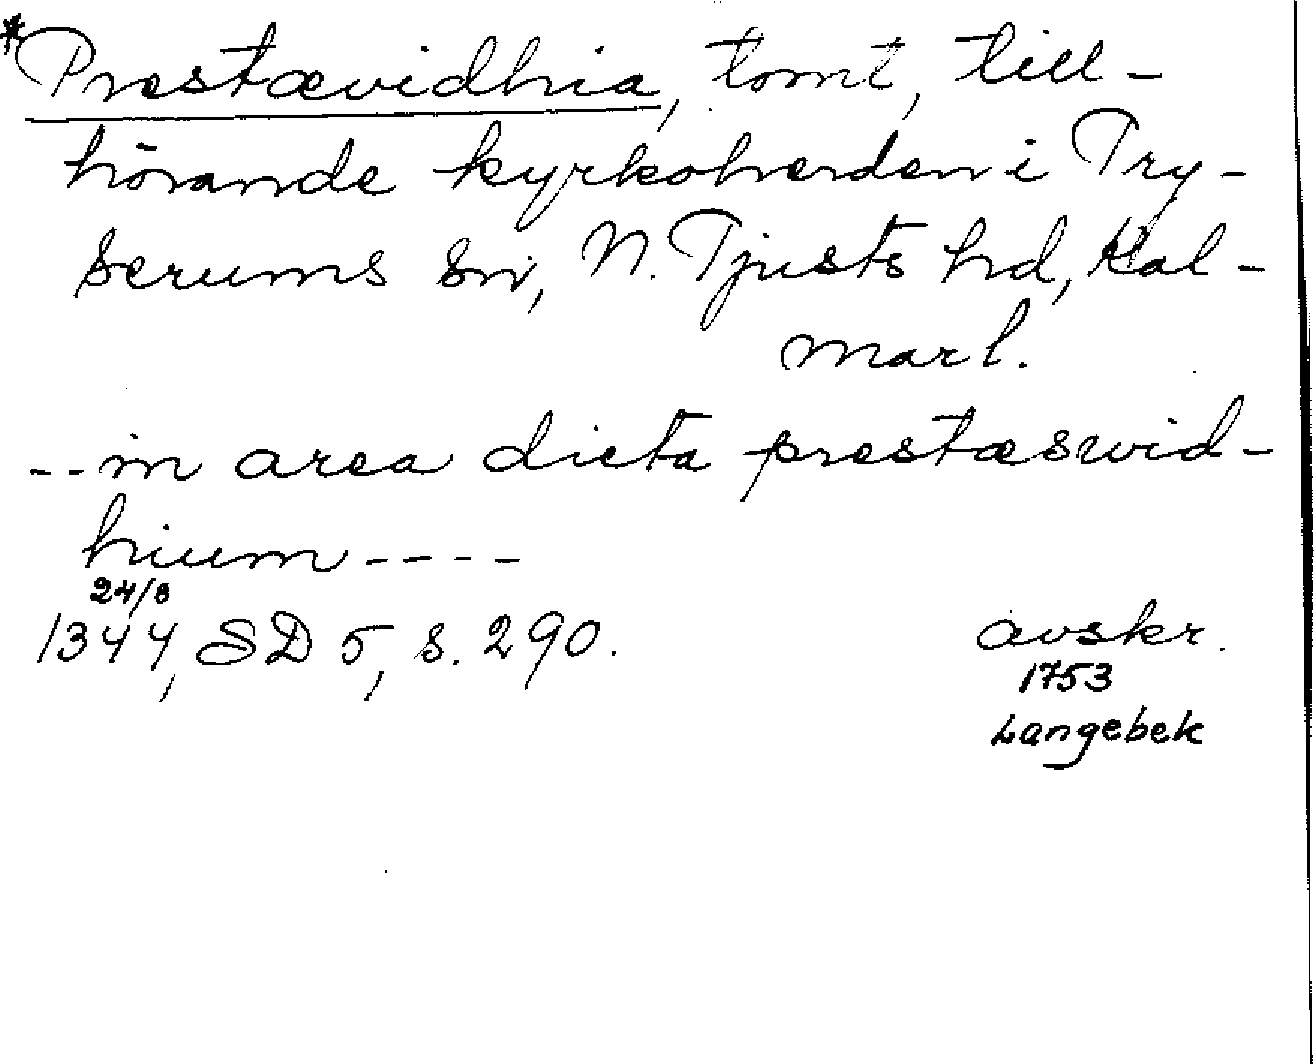 *Prestævidhia, tomt, till-
hörande kyrkoherden i Try-
serums sn, N. Tjusts hd, Kal-
mar l.
-- in area dicta prestæswid-
hium ----
24/8
1344, SD 5, s. 290.
avskr.
1753
Langebek